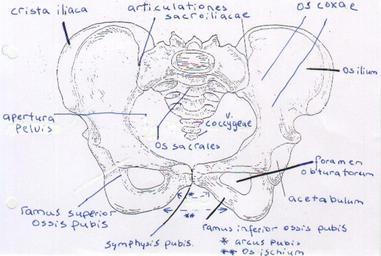 crista iliaca
articulationes
sacroiliacae
os coxae
os ilium
apertura
pelvis
v.
coccygeae
os sacrales
foramen
obturatorum
acetabulum
ramus superior
ossis pubis
symphysis pubis
ramus inferior ossis pubis
* arcus pubis
** os ischium
*
**